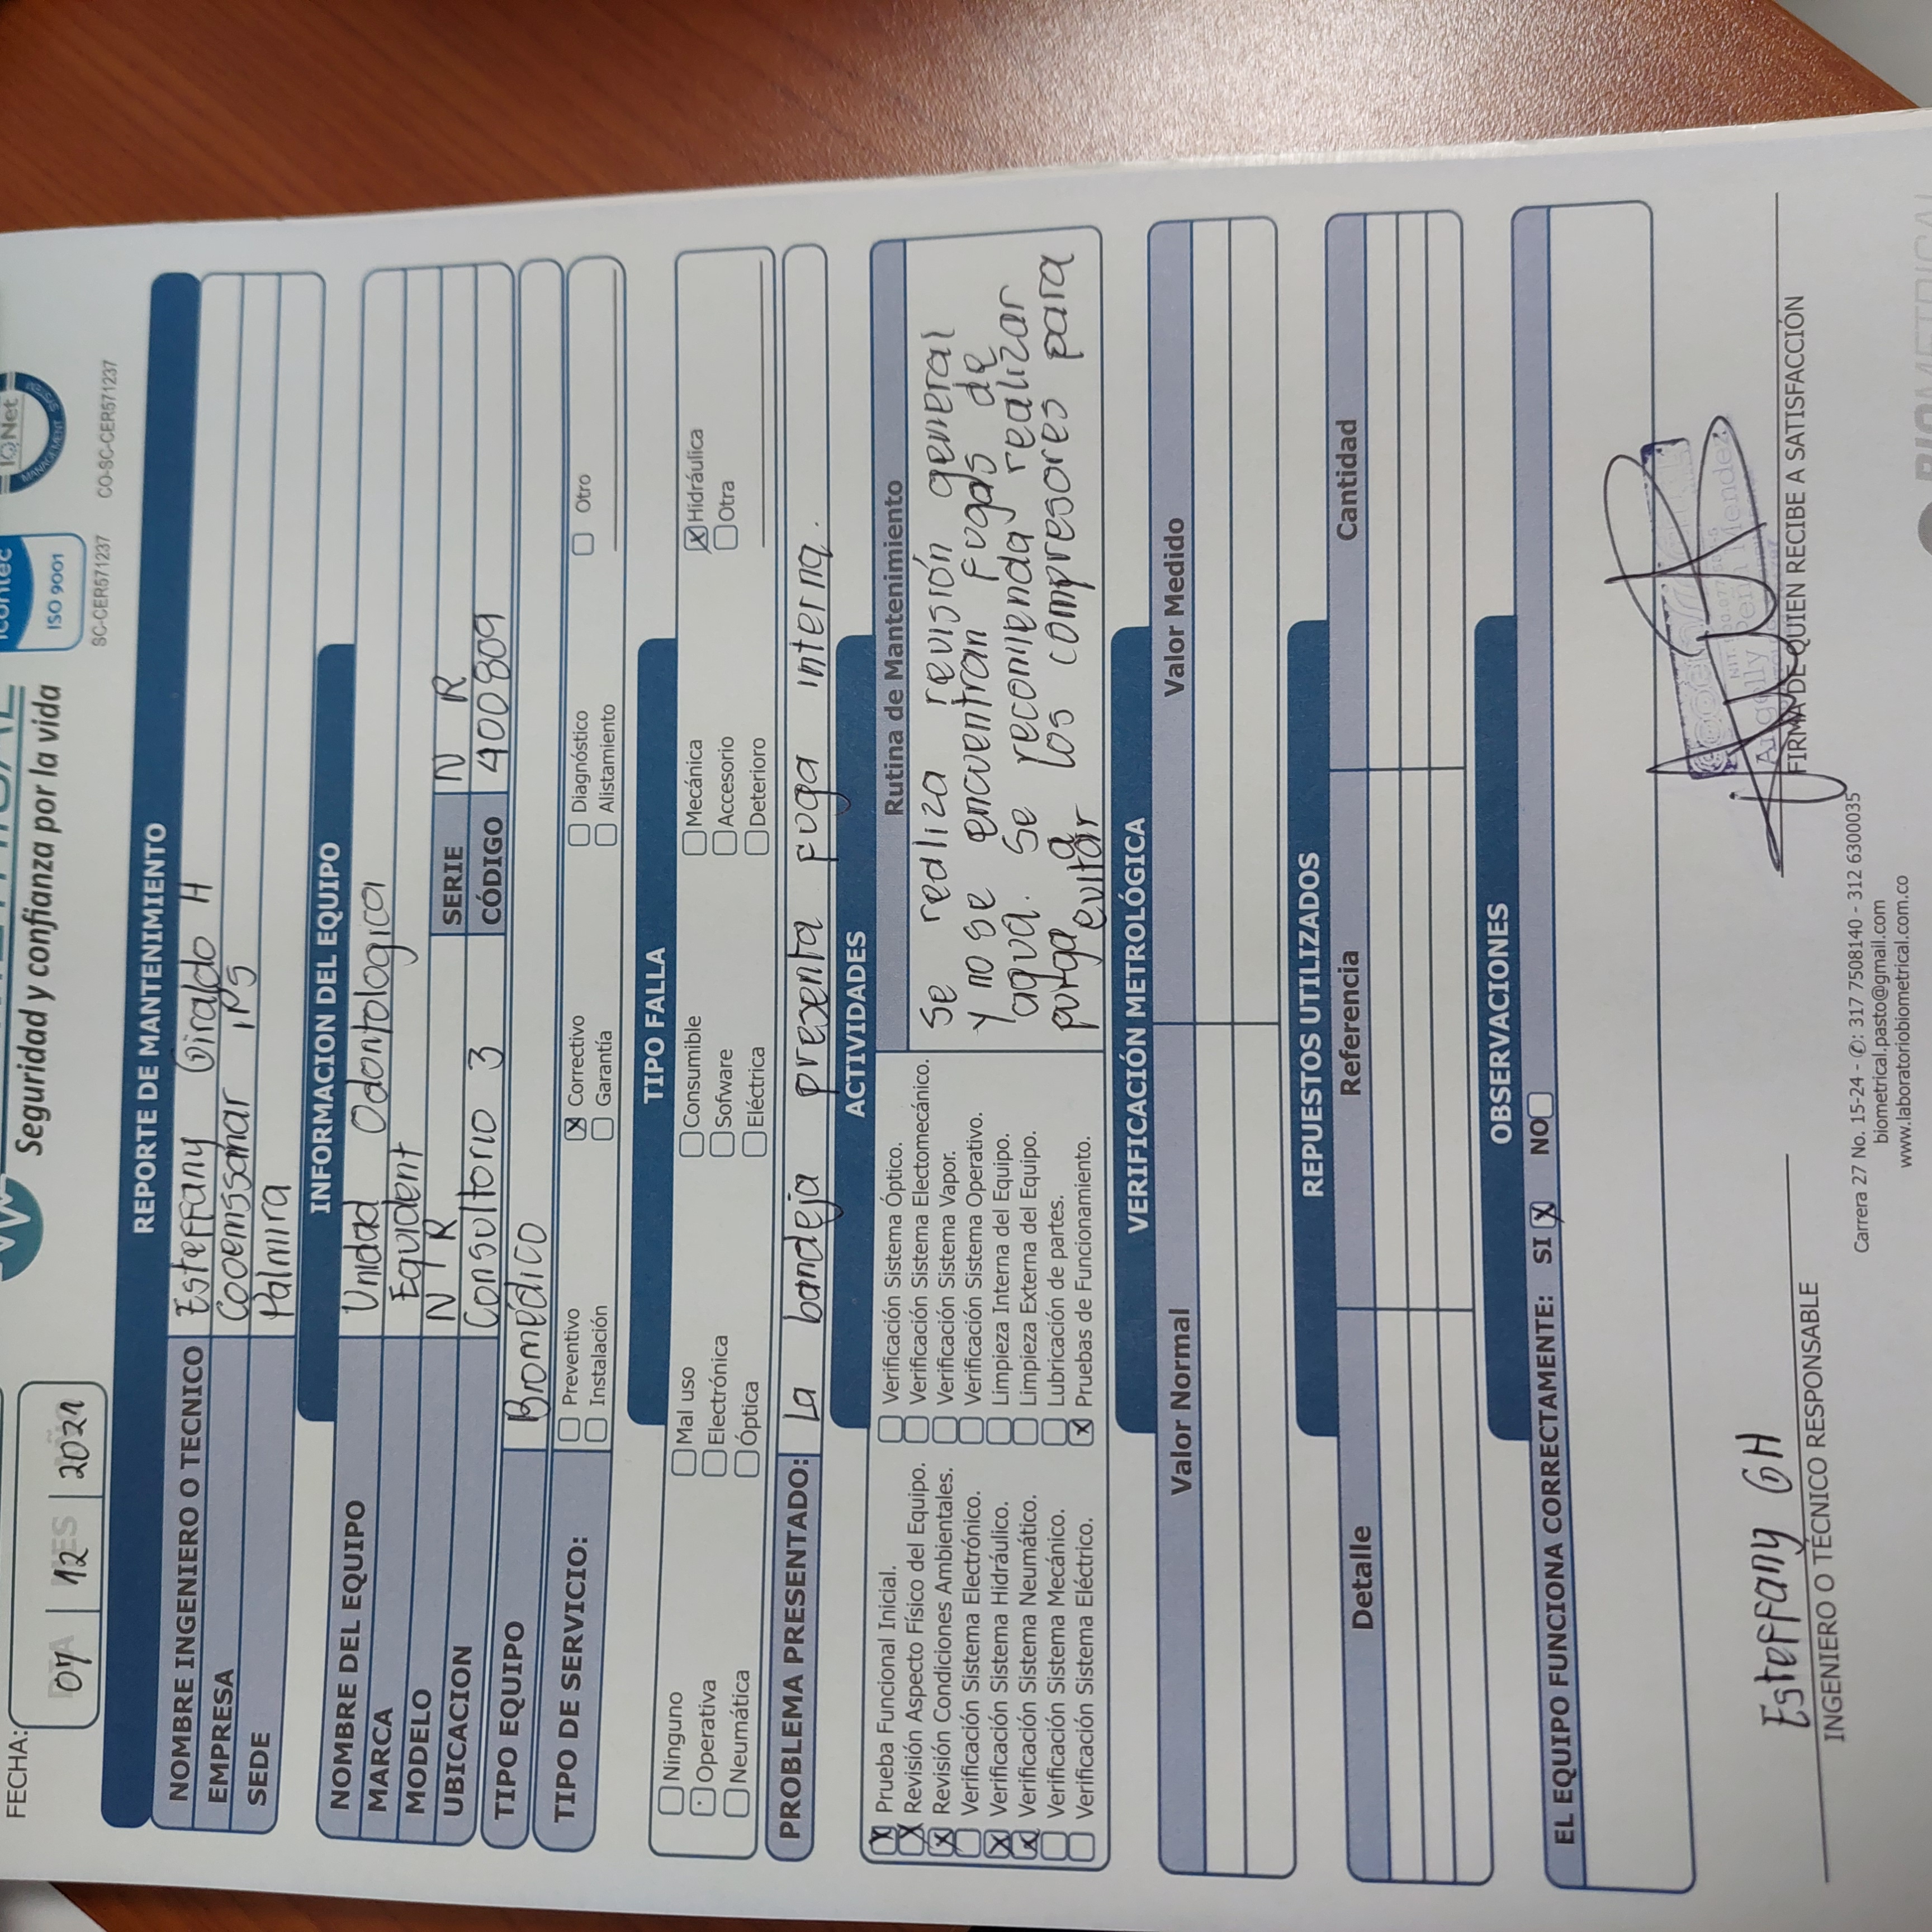 FECHA:
DIA MES AÑO
07 12 2021
Seguridad y confianza por la vida
icontec
ISO 9001
SC-CER571237
IQNet
MANAGEMENT SYSTEM
CO-SC-CER571237
REPORTE DE MANTENIMIENTO
NOMBRE INGENIERO O TECNICO Esteffany Giraldo H
EMPRESA Cooemssanar IPS
SEDE Palmira
INFORMACION DEL EQUIPO
NOMBRE DEL EQUIPO Unidad Odontologica
MARCA Equident
MODELO N R SERIE N R
UBICACION Consultorio 3 CÓDIGO 400809
TIPO EQUIPO Biomédico
TIPO DE SERVICIO: Preventivo X Correctivo Diagnóstico Otro
Instalación Garantía Alistamiento
TIPO FALLA
Ninguno Mal uso Consumible Mecánica X Hidráulica
Operativa Electrónica Sofware Accesorio Otra
Neumática Óptica Eléctrica Deterioro
PROBLEMA PRESENTADO: La bandeja presenta fuga interna.
ACTIVIDADES
X Prueba Funcional Inicial.
X Revisión Aspecto Físico del Equipo.
X Revisión Condiciones Ambientales.
Verificación Sistema Electrónico.
X Verificación Sistema Hidráulico.
X Verificación Sistema Neumático.
Verificación Sistema Mecánico.
Verificación Sistema Eléctrico.
Verificación Sistema Óptico.
Verificación Sistema Electomecánico.
Verificación Sistema Vapor.
Verificación Sistema Operativo.
Limpieza Interna del Equipo.
Limpieza Externa del Equipo.
Lubricación de partes.
X Pruebas de Funcionamiento.
Rutina de Mantenimiento
Se realiza revisión general
y no se encuentran fugas de
agua. Se recomienda realizar
purga a los compresores para
evitar
VERIFICACIÓN METROLÓGICA
Valor Normal Valor Medido
REPUESTOS UTILIZADOS
Detalle Referencia Cantidad
OBSERVACIONES
EL EQUIPO FUNCIONA CORRECTAMENTE: SI X NO
Esteffany GH
INGENIERO O TÉCNICO RESPONSABLE
Angelly Peña Mendez
FIRMA DE QUIEN RECIBE A SATISFACCIÓN
Carrera 27 No. 15-24 - ✆: 317 7508140 - 312 6300035
biometrical.pasto@gmail.com
www.laboratoriobiometrical.com.co
BIOMETRICAL